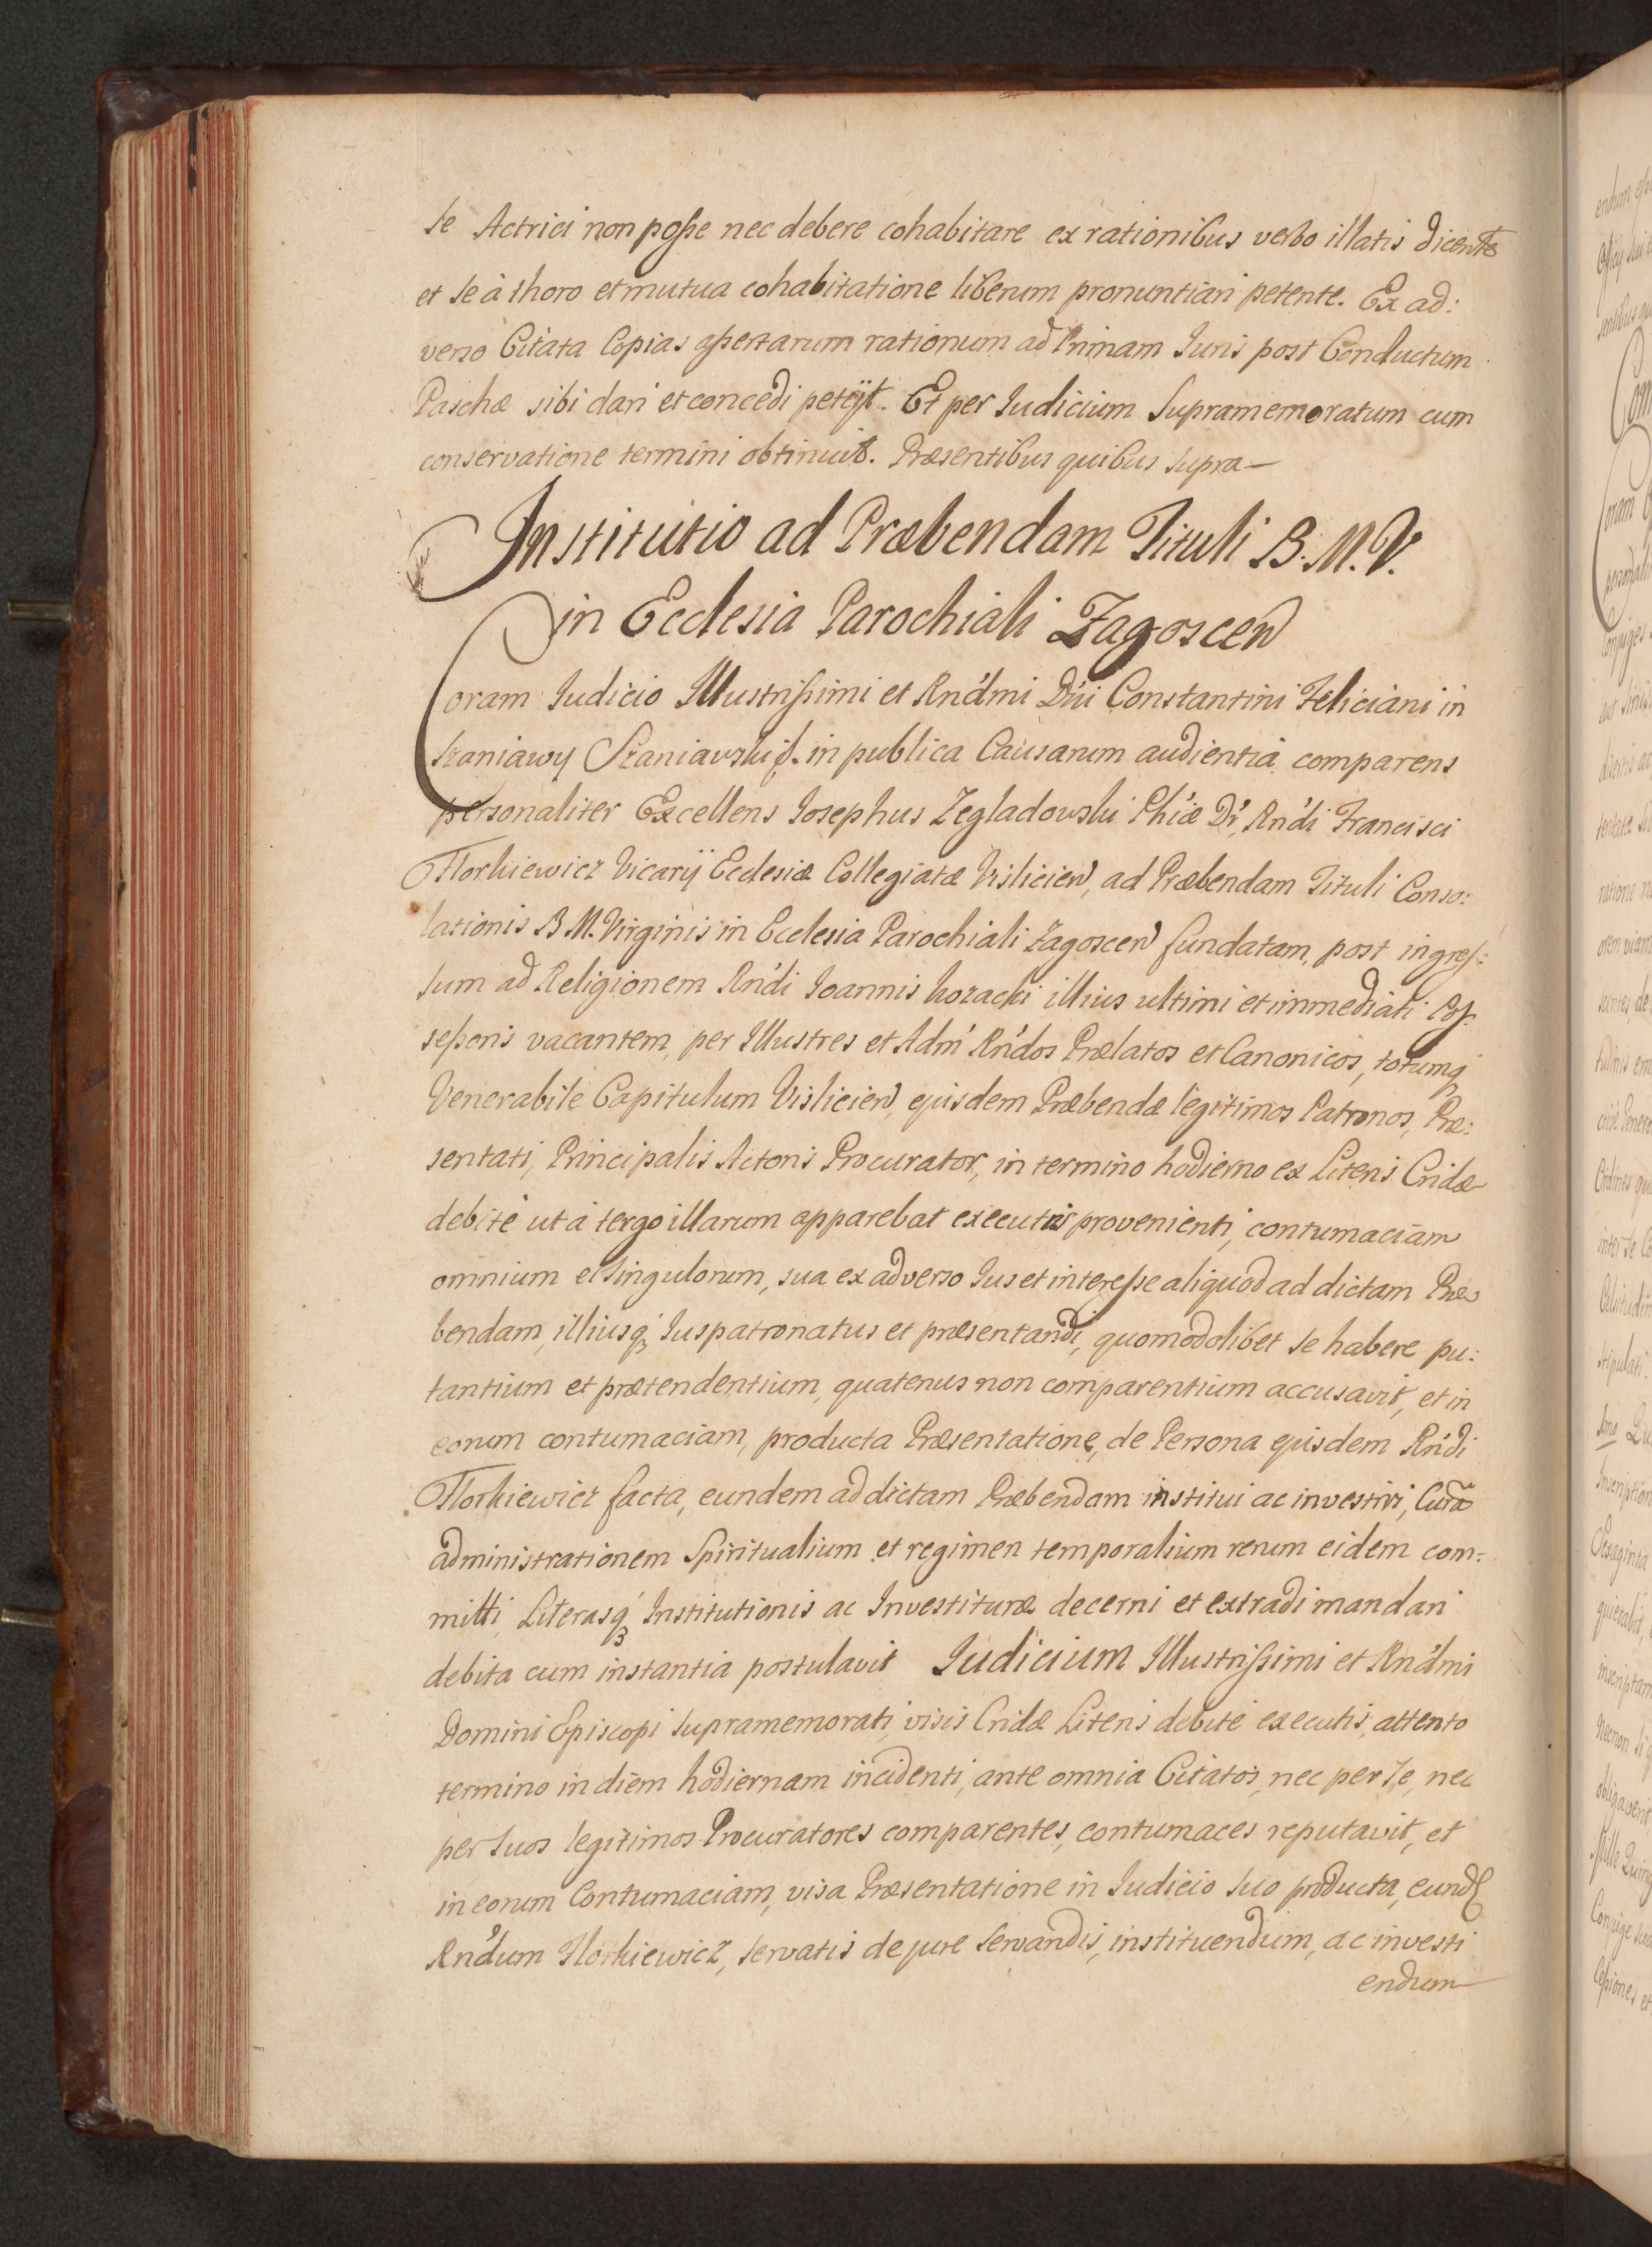 se Actrici non posse nec debere cohabitare ex rationibus verbo illatis dicente
et se à thoro et mutua cohabitatione liberum pronuntiari petente. Ex ad:
verso Citata Copias assertarum rationum ad Primam Juris post Conductum
Paschæ sibi dari et concedi petijt. Et per Judicium Supramemoratum cum
conservatione termini obtinuit. Præsentibus quibus supra
Institutio ad Præbendam Tituli B. M. V.
in Ecclesia Parochiali Zagoscen
Coram Judicio Illustrissimi et Rndmi Dni Constantini Feliciani in
Szaniawy Szaniawski in publica Causarum audientia comparens
personaliter Excellens Josephus Zegladowski Phiæ Dr, Rndi Francisci
Florkiewicz Vicarij Ecclesiæ Collegiatæ Vislicien, ad Præbendam Tituli Conso:
lationis B M. Virginis in Ecclesia Parochiali Zagoscen fundatam, post ingres:
sum ad Religionem Rndi Joannis Kozacki illius ultimi et immediati Pos
sessoris vacantem, per Illustres et Adm Rndos Prælatos et Canonicos, totumq
Venerabile Capitulum Vislicien, ejusdem Præbendæ legitimos Patronos, Præ:
sentati, Principalis Actoris Procurator, in termino hodierno ex Literis Cridæ
debitè ut à tergo illarum apparebat executis provenienti, contumaciam
omnium et singulorum, sua ex adverso Jus et interesse aliquod ad dictam Præ
bendam, illiusq Juspatronatus et præsentandi, quomodolibet se habere pu:
tantium et prætendentium, quatenus non comparentium accusavit, et in
eorum contumaciam, producta Præsentatione, de Persona ejusdem Rndi
Florkiewicz facta, eundem ad dictam Præbendam institui ac investiri, Curã
administrationem Spiritualium et regimen temporalium rerum eidem com:
mitti, Literasq Institutionis ac Investituræ decerni et extradi mandari
debita cum instantia postulavit Judicium Illustrissimi et Rndmi
Domini Episcopi supramemorati, visis Cridæ Literis debitè executis, attento
termino in diem hodiernam incidenti, ante omnia Citatos, nec per se, nec
per suos legitimos Procuratores comparentes, contumaces reputavit, et
in eorum Contumaciam, visa Præsentatione in Judicio suo producta, eund
Rndum Florkiewicz, servatis de jure servandis, instituendum, ac investi
endum